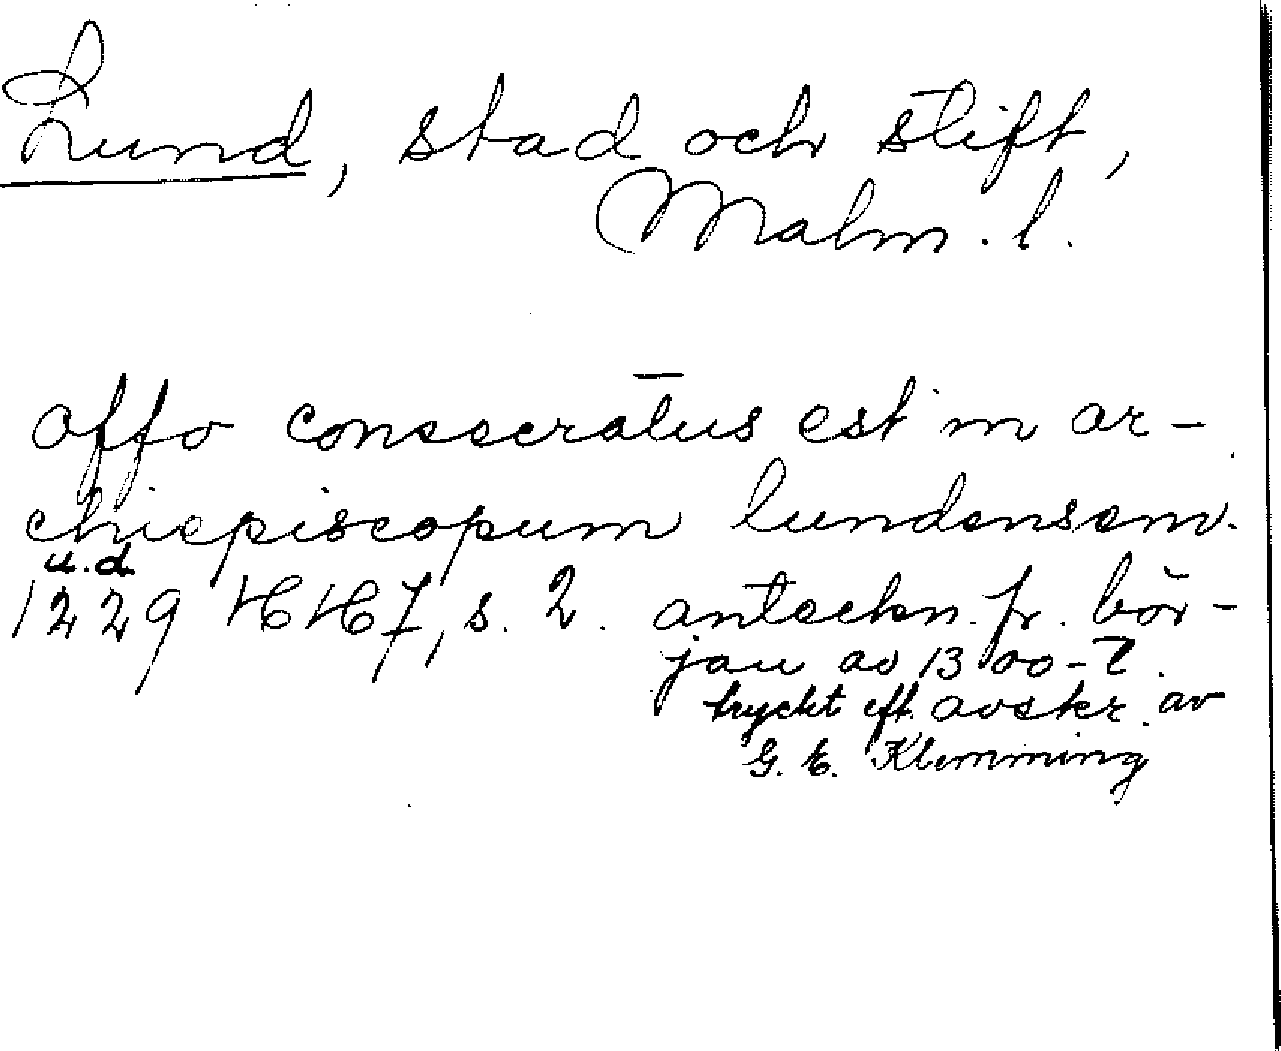 Lund, stad och stift,
Malm. l.
offo consecratus est in ar-
chiepiscopum lundensem.
u.d.
1229 HH 7, s. 2. anteckn. fr. bör-
jan av 1300-t.
tryckt eft. avskr. av
G. E. Klemming